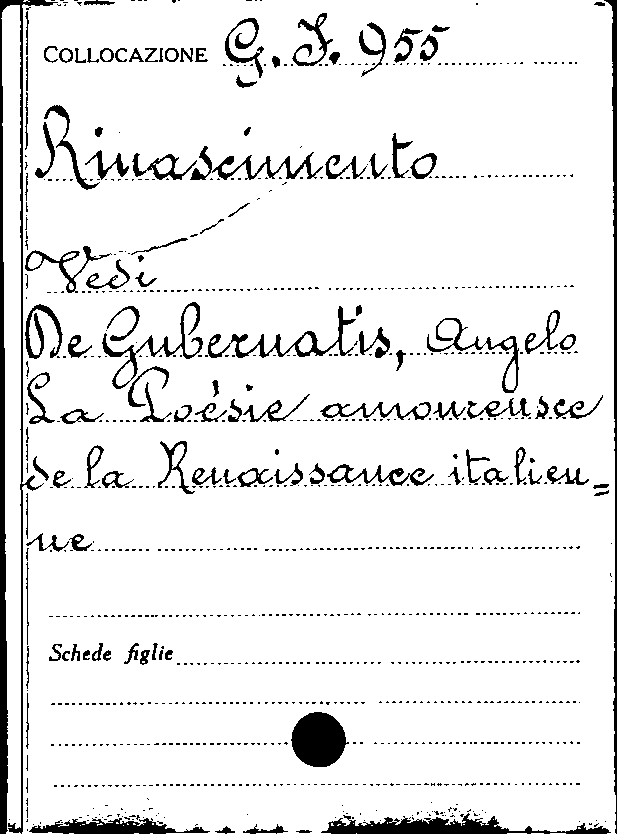 COLLOCAZIONE G. I. 955
Rinascimento
Vedi
De Gubernatis, Angelo
La Poésie amoureusee
de la Renaissance italien=
ne
Schede figlie